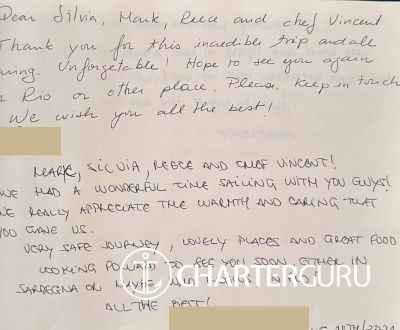 Dear Silvia, Mark, Reece and chef Vincent
Thank you for this incredible trip and all
Unforgetable! Hope to see you again
Rio or other place. Please, keep in touch
We wish you all the best!
MARK, SILVIA, REESE AND CHEF VINCENT!
WE HAD A WONDERFUL TIME SAILING WITH YOU GUYS!
WE REALLY APPRECIATE THE WARMTH AND CARING THAT
YOU GAVE US.
VERY SAFE JOURNEY, LOVELY PLACES AND GREAT FOOD
LOOKING FOWARD TO SEE YOU SOON, EITHER IN
SARDEGNA OR MAYBE
CHARTERGURU
ALL THE BEST!